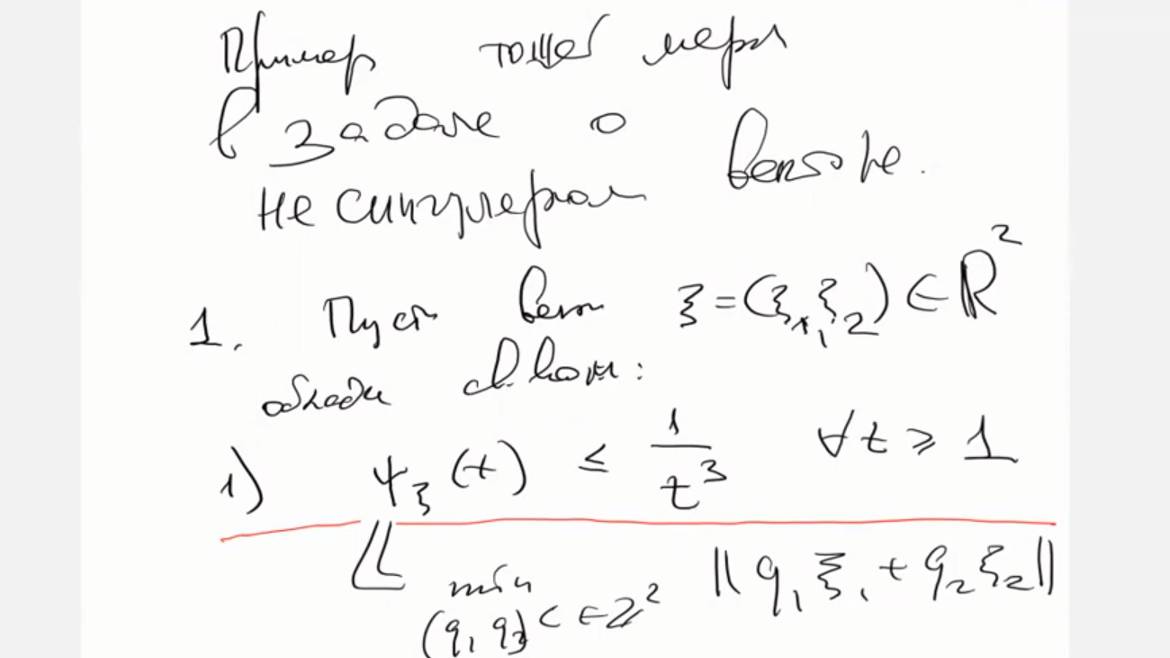 Пример тощей меры
в задаче о
не сингулярном векторе.
1. Пусть век ξ = (ξ₁, ξ₂) ∈ ℝ²
облада свом:
1) ψ_ξ(t) ≤ 1/t³ ∀t ≥ 1
min (q₁ q₂) ∈ ℤ² ||q₁ξ₁ + q₂ξ₂||